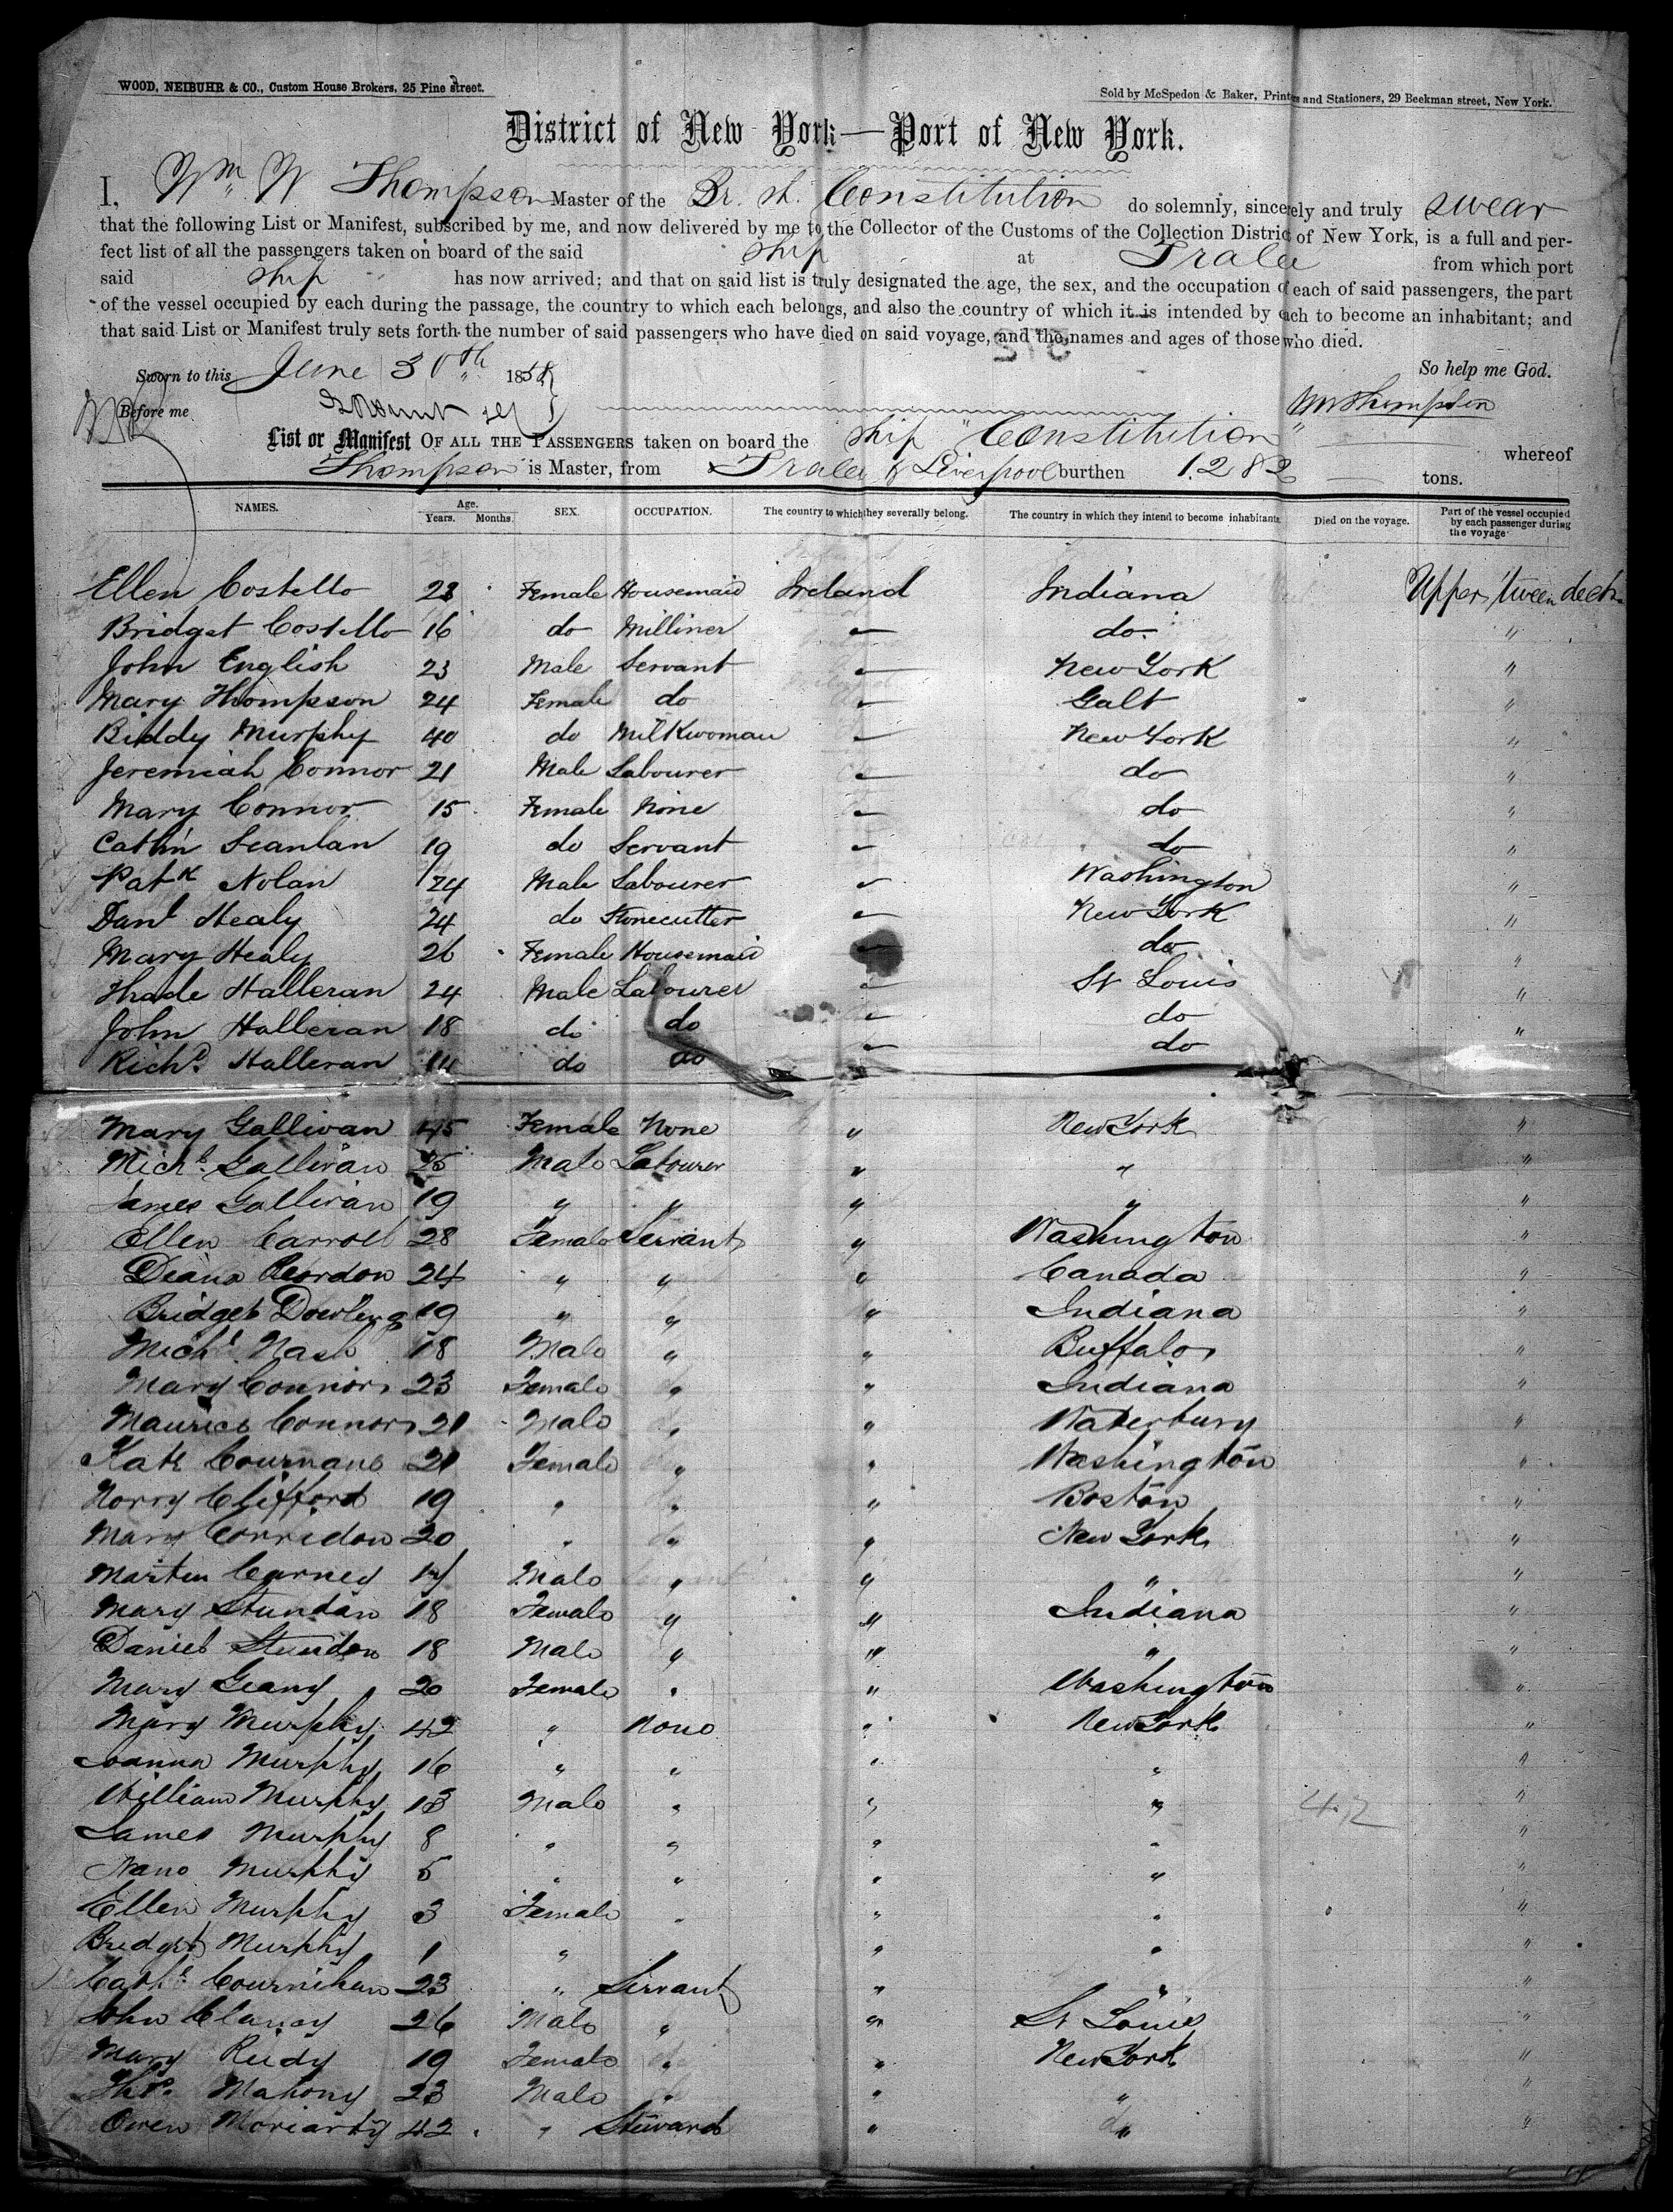 WOOD, NEIBUHR & CO., Custom House Brokers, 25 Pine street.
Sold by McSpedon & Baker, Printers and Stationers, 29 Beekman street, New York.
District of New York—Port of New York.
I, Wm W Thompson Master of the Br. Sh. Constitution do solemnly, sincerely and truly swear
that the following List or Manifest, subscribed by me, and now delivered by me to the Collector of the Customs of the Collection District of New York, is a full and per-
fect list of all the passengers taken on board of the said ship at Tralee from which port
said ship has now arrived; and that on said list is truly designated the age, the sex, and the occupation of each of said passengers, the part
of the vessel occupied by each during the passage, the country to which each belongs, and also the country of which it is intended by each to become an inhabitant; and
that said List or Manifest truly sets forth the number of said passengers who have died on said voyage, and the names and ages of those who died.
Sworn to this June 30th 1858 So help me God.
Before me WWThompson
List or Manifest OF ALL THE PASSENGERS taken on board the ship "Constitution" whereof
Thompson is Master, from Tralee & Liverpool burthen 1282 tons.
NAMES. Age. Years. Months. SEX. OCCUPATION. The country to which they severally belong. The country in which they intend to become inhabitants. Died on the voyage. Part of the vessel occupied by each passenger during the voyage
Ellen Costello 23 Female Housemaid Ireland Indiana Upper 'tween decks
Bridget Costello 16 do Milliner " do. "
John English 23 Male Servant " New York "
Mary Thompson 24 Female do " Galt "
Biddy Murphy 40 do Milkwoman " New York "
Jeremiah Connor 21 Male Labourer " do "
Mary Connor 15 Female None " do "
Cathn Scanlan 19 do Servant " do "
Patk Nolan 24 Male Labourer " Washington "
Danl Healy 24 do Stonecutter " New York "
Mary Healy 26 Female Housemaid " do "
Thade Halleran 24 Male Labourer " St Louis "
John Halleran 18 do do " do "
Richd. Halleran 14 do do " do
Mary Gallivan 45 Female None " New York "
Michl. Gallivan 25 Male Labourer " " "
James Gallivan 19 " " " " "
Ellen Carroll 28 Female Servant " Washington "
Deana Reordon 24 " " " Canada "
Bridget Dowling 19 " " " Indiana "
Michl Nash 18 Male " " Buffalo "
Mary Connors 23 Female " " Indiana "
Maurice Connors 21 Male " " Waterbury "
Kate Cournane 21 Female " " Washington "
Norry Clifford 19 " " " Boston "
Mary Corridon 20 " " " New York "
Martin Carney 17 Male " " " "
Mary Stundan 18 Female " " Indiana "
Daniel Stundon 18 Male " " " "
Mary Geany 20 Female " " Washington "
Mary Murphy 42 " None " New York "
Joanna Murphy 16 " " " " "
William Murphy 13 Male " " " 42 "
James Murphy 8 " " " " "
Nano Murphy 5 " " " " "
Ellen Murphy 3 Female " " " "
Bridget Murphy 1 " " " " "
Cathe Cournihan 23 " Servant " " "
John Clancy 26 Male " " St Louis "
Mary Reidy 19 Female " " New York "
Thos. Mahony 23 Male " " " "
Owen Moriarty 42 " Steward " " "